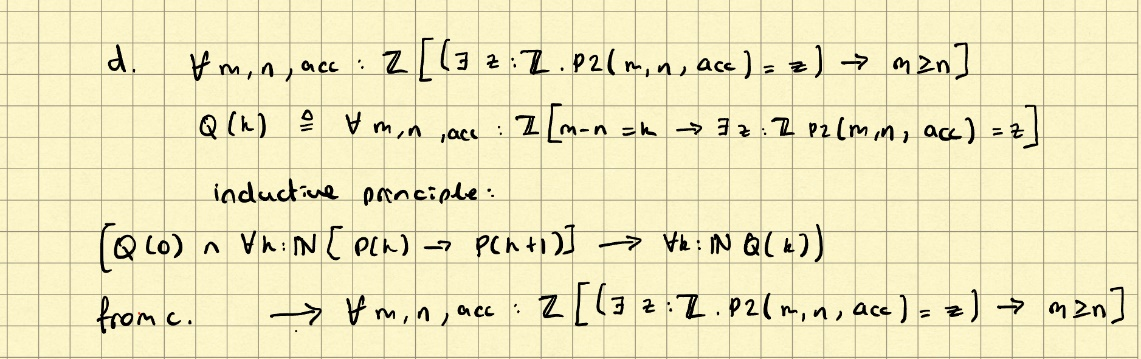 d. ∀ m, n, acc : ℤ [(∃ z : ℤ . P2(m, n, acc) = z) → m ≥ n]
Q(k) ≜ ∀ m, n, acc : ℤ [m-n = k → ∃ z : ℤ P2(m, n, acc) = z]
inductive principle:
[Q(0) ∧ ∀k : ℕ [P(k) → P(k+1)] → ∀k : ℕ Q(k))
from c. → ∀ m, n, acc : ℤ [(∃ z : ℤ . P2(m, n, acc) = z) → m ≥ n]